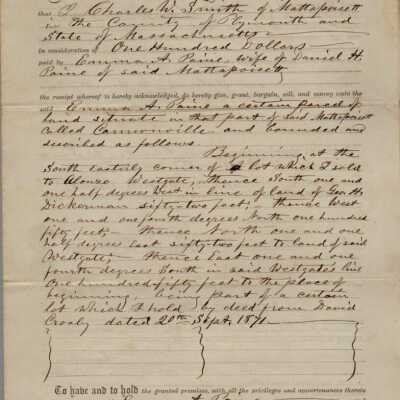 that I Charles W. Smith of Mattapoisett
in the County of Plymouth and
State of Massachusetts
in consideration of One Hundred Dollars
paid by Emma A. Paine, wife of Daniel H.
Paine of said Mattapoisett
the receipt whereof is hereby acknowledged, do hereby give, grant, bargain, sell, and convey unto the
said Emma A. Paine a certain parcel of
land situate in that part of said Mattapoisett
called Cannonville and bounded and
described as follows.
Beginning at the
South easterly corner of a lot which I sold
to Alonzo Westgate, thence South one and
one half degrees West in line of land of Geo. H.
Dickerman sixty-two feet; thence West
one and one fourth degrees North one hundred
fifty feet; thence North one and one
half degrees East sixty-two feet to land of said
Westgate; thence East one and one
fourth degrees South in said Westgate's line
One hundred fifty feet to the place of
beginning, being part of a certain
lot which I hold by deed from David
Crosby dated 20th Sept. 1871.
To have and to hold the granted premises, with all the privileges and appurtenances thereto